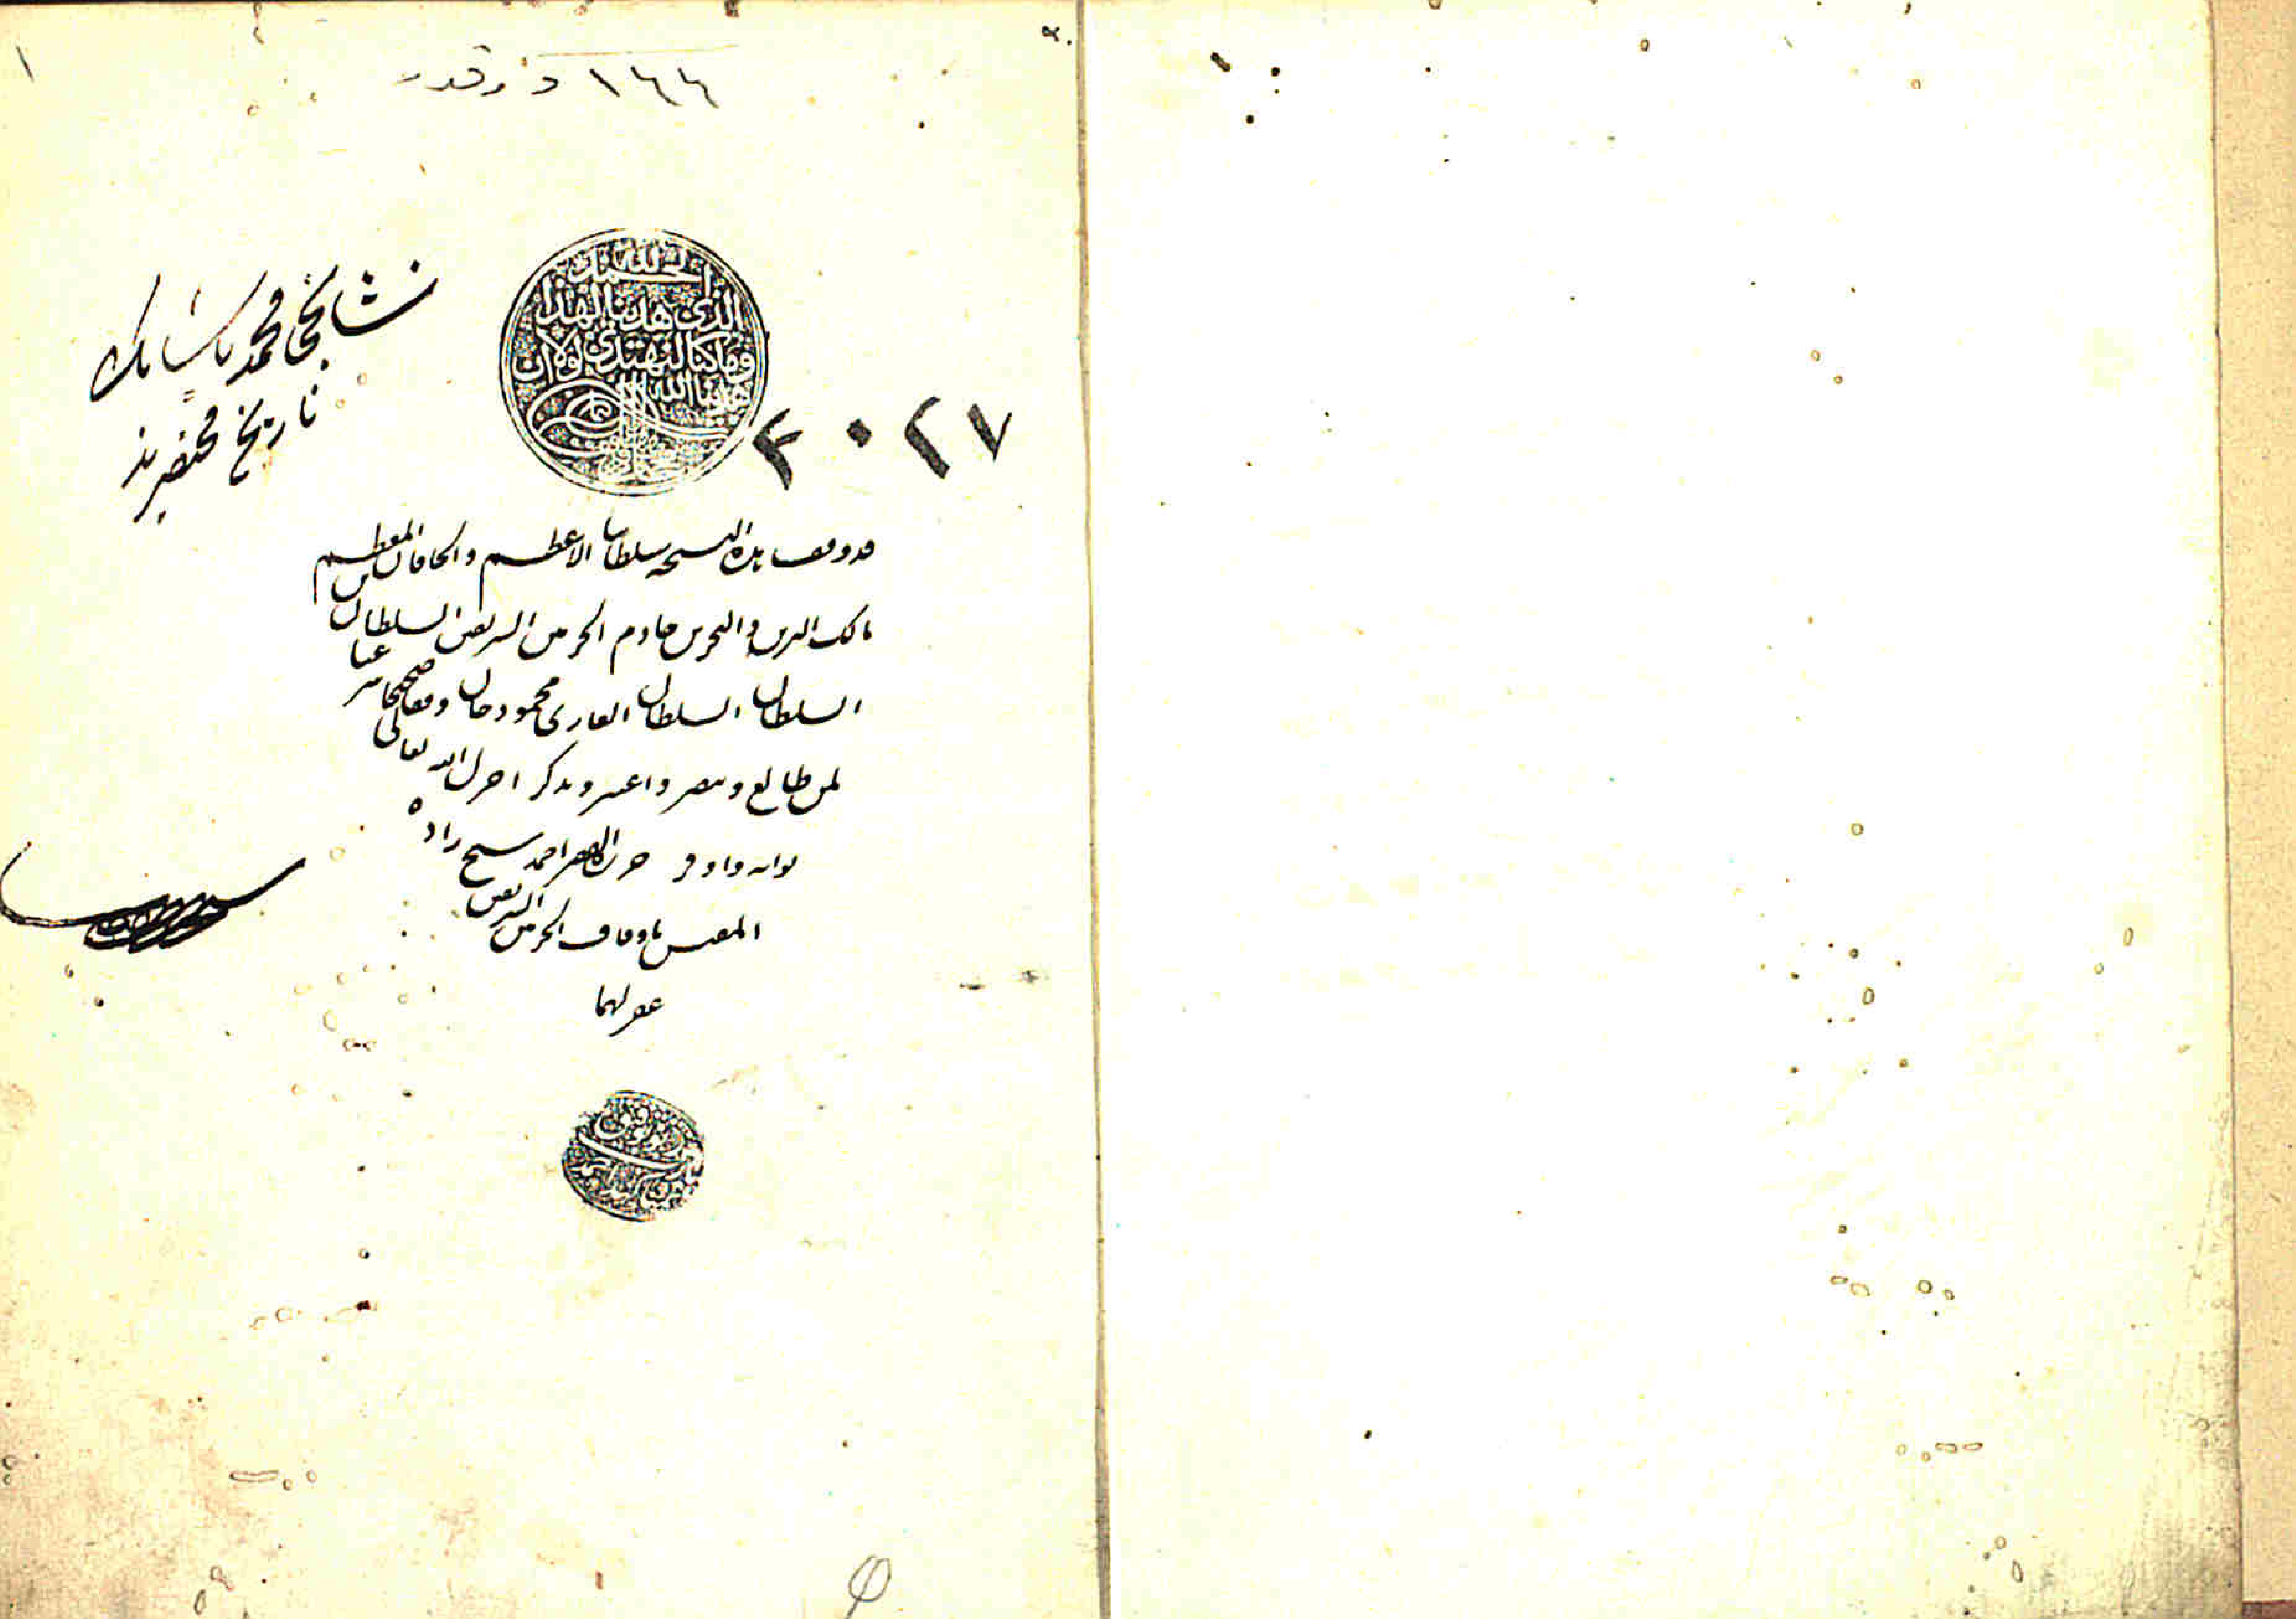 ١
١٤٤ د وقدر
الحمد لله
الذى هدينا لهذا
وما كنا لنهتدى لولا ان
هدينا الله
نشانجى محمد پاشانك
تاريخ مختصريدر
٤٠٢٧
قد وقف هذه النسخه سلطاننا الاعظم والخاقان المعظم
مالك البرين والبحرين خادم الحرمين الشريفين السلطان بن
السلطان السلطان الغازى محمود خان وقفا صحيحا شرعيا
لمن طالع وتبصر واعتبر وتذكر اجزل الله تعالى
ثوابه واوفر حرره الفقير احمد شيخ زاده
المفتش باوقاف الحرمين الشريفين
غفر لهما